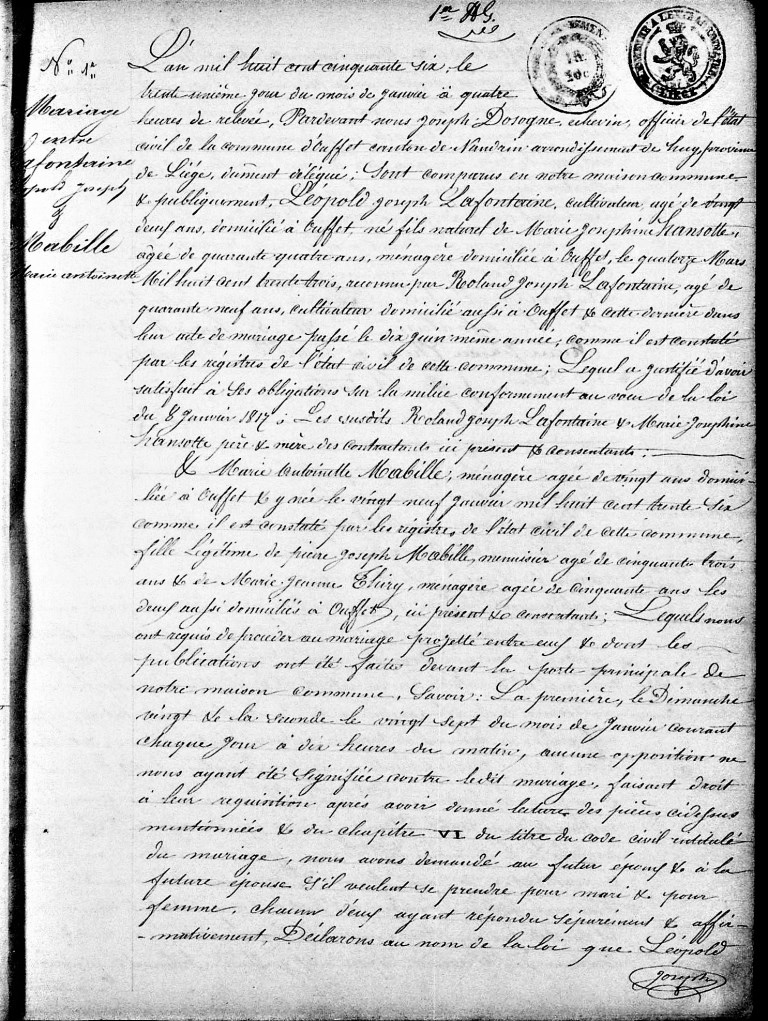 1er
N° 1er
Mariage
entre
Lafontaine
Léopold Joseph
&
Mabille
Marie antoinette
L'an mil huit cent cinquante six, le
trente unième jour du mois de janvier à quatre
heures de relevée, Pardevant nous Joseph Dosogne, échevin, officier de l'état
civil de la commune d'Ouffet canton de Nandrin arrondissement de huy, province
de Liége, dûment délégué ; Sont comparus en notre maison commune
& publiquement, Léopold Joseph Lafontaine, cultivateur, agé de vingt
deux ans, domicilié à Ouffet, né fils naturel de Marie Josephine hansotte,
agée de quarante quatre ans, ménagère domiciliée à Ouffet, le quatorze Mars
Mil huit cent trente trois, reconnu par Roland Joseph Lafontaine, agé de
quarante neuf ans, cultivateur domicilié aussi à Ouffet & cette dernière dans
leur acte de mariage passé le dix juin même année, comme il est constaté
par les régistres de l'état civil de cette commune ; Lequel a justifié d'avoir
satisfait à ses obligations sur la milice conformement au voeu de la loi
du 8 janvier 1817 ; Les susdits Roland Joseph Lafontaine & Marie Josephine
hansotte père & mère des contractants ici présent & consentants :
& Marie Antoinette Mabille, ménagère agée de vingt ans domici-
liée à Ouffet & y née le vingt neuf janvier mil huit cent trente six
comme il est constaté par les régistres de l'état civil de cette commune,
fille légitime de pierre Joseph Mabille, menuisier agé de cinquante trois
ans & de Marie Jeanne Thiry, ménagère agée de cinquante ans les
deux aussi domiciliés à Ouffet, ici présent & consentants ; Lequels nous
ont requis de procéder au mariage projetté entre eux & dont les
publications ont été faite devant la porte principale de
notre maison commune, Savoir : La première, le Dimanche
vingt & la seconde le vingt sept du mois de janvier courant
chaque jour à dix heures du matin, aucune opposition ne
nous ayant été signifiée contre ledit mariage, faisant droit
à leur requisition après avoir donné lecture des pièces cidessus
mentionnées & du chapitre VI du titre du code civil intitulé
du mariage, nous avons demandé au futur époux & à la
future épouse s'il veulent se prendre pour mari & pour
femme, chacun d'eux ayant répondu séparément & affir-
-mativement, Déclarons au nom de la loi que Léopold
Joseph